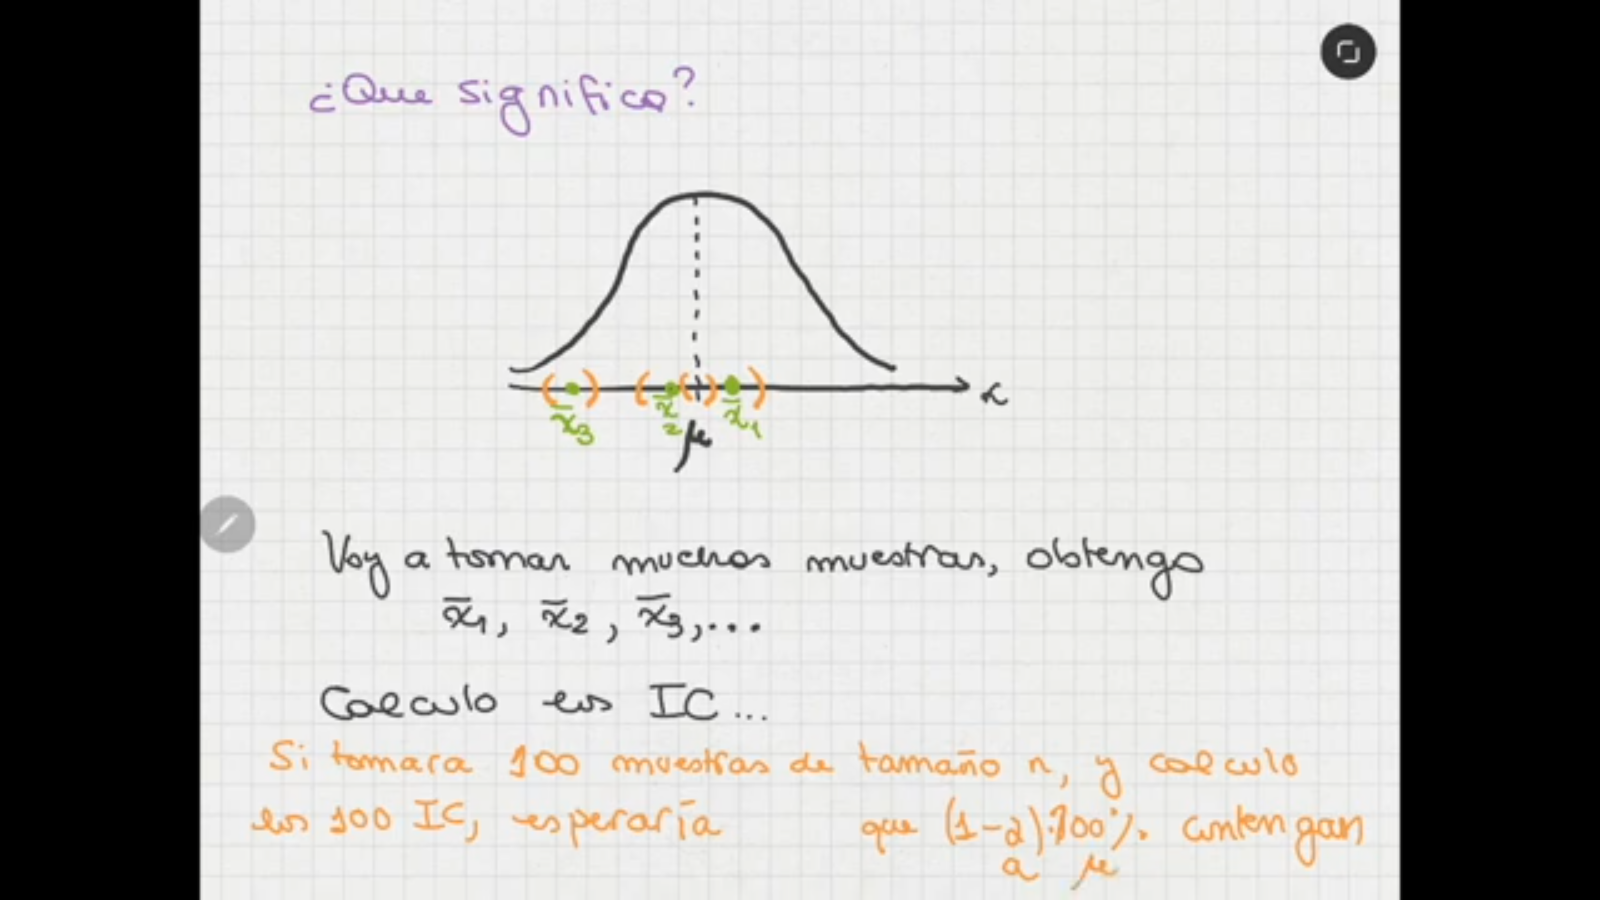 ¿Que significa?
x
x̄3 x̄2 x̄1
μ
Voy a tomar muchas muestras, obtengo
x̄1, x̄2, x̄3,...
Calculo los IC...
Si tomara 100 muestras de tamaño n, y calculo
los 100 IC, esperaría que (1-α).100%. contengan
a μ